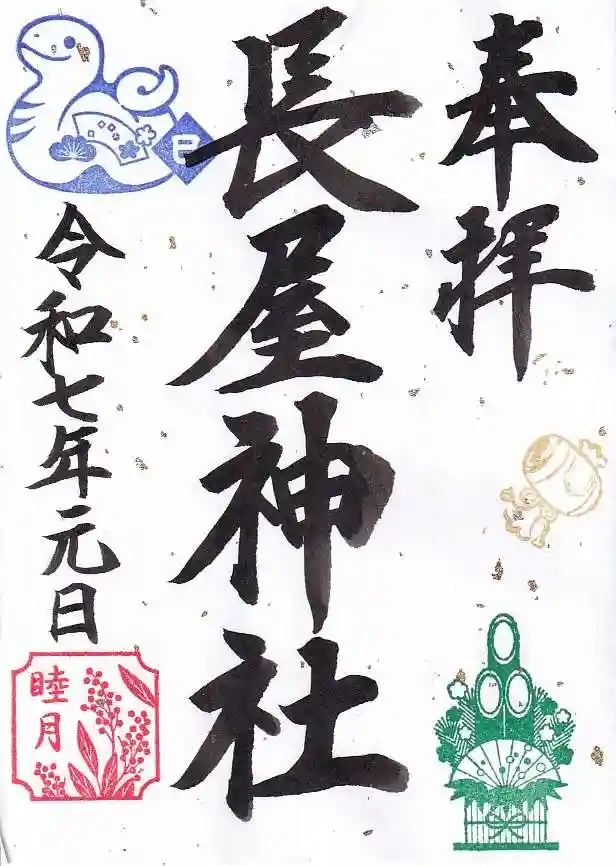 奉拝
長屋神社
巳
令和七年元日
睦月